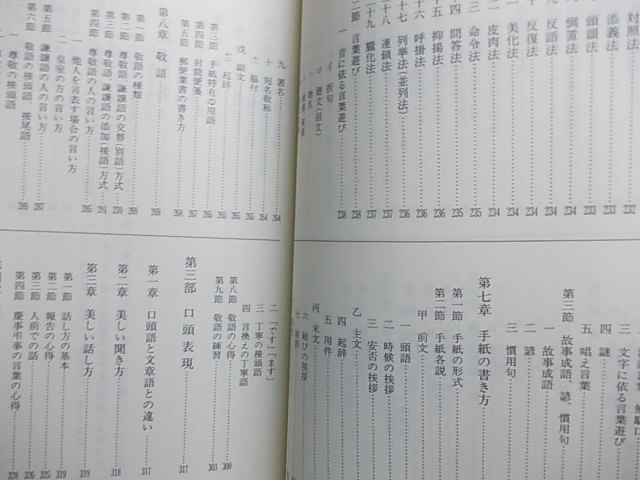 対照法…232
添義法…233
頭韻法…233
倒置法…233
十 反語法…234
十一 反復法…234
十二 美化法…234
十三 皮肉法…234
十四 命令法…235
十五 問答法…235
十六 抑揚法…236
十七 呼掛法…236
十八 列挙法(並列法)…236
十九 連鎖法…237
二十 朧化法…237
第二節 言葉遊び…238
一 音に依る言葉遊び…238
イ 折句
ロ 廻文(回文)
ハ 物名
三 文字に依る言葉遊び
四 謎
五 唱え言葉
第三節 故事成語、諺、慣用句
一 故事成語
二 諺
三 慣用句
第七章 手紙の書き方
第一節 手紙の形式
第二節 手紙各説
甲 前文
一 頭語
二 時候の挨拶
三 安否の挨拶
四 起辞
乙 主文
五 用件
丙 末文
六 結びの挨拶
七 結語
九 署名…264
十 宛名敬称…264
十一 脇付…265
戊 副文…265
十二 起辞…265
第三節 手紙特有の用語…265
第四節 封筒便箋…267
第五節 郵便葉書の書き方…268
第八章 敬語…269
第一節 敬語の種類…269
第二節 尊敬語、謙譲語の交替(別語)方式…270
第三節 尊敬語、謙譲語の添加(接語)方式…291
第四節 尊敬語の人の言い方…295
一 他人を言表す場合の言い方
二 皇室の方の言い方
第五節 謙譲語の人の言い方…297
第六節 敬語の接頭語、接尾語…299
一 尊敬の接頭語…299
二 「です」「ます」
三 丁寧の接頭語
四 言換えの丁寧語
第八節 敬語の心得…300
第九節 敬語の練習…303
第三部 口頭表現…317
第一章 口頭語と文章語との違い…317
第二章 美しい聞き方…318
第三章 美しい話し方…319
第一節 話し方の基本…319
第二節 報告の心得…325
第三節 人前での話…326
第四節 慶事弔事の言葉の心得…328